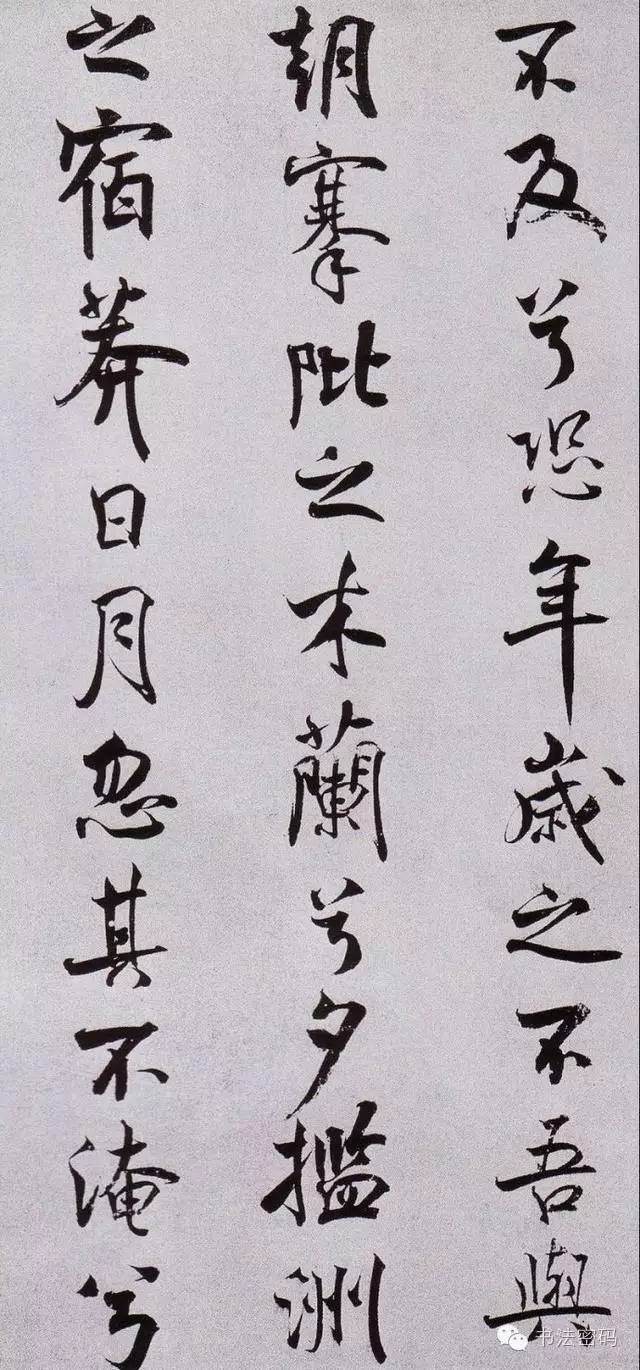 不及兮恐年歲之不吾與
朝搴阰之木蘭兮夕擥洲
之宿莽日月忽其不淹兮
书法密码